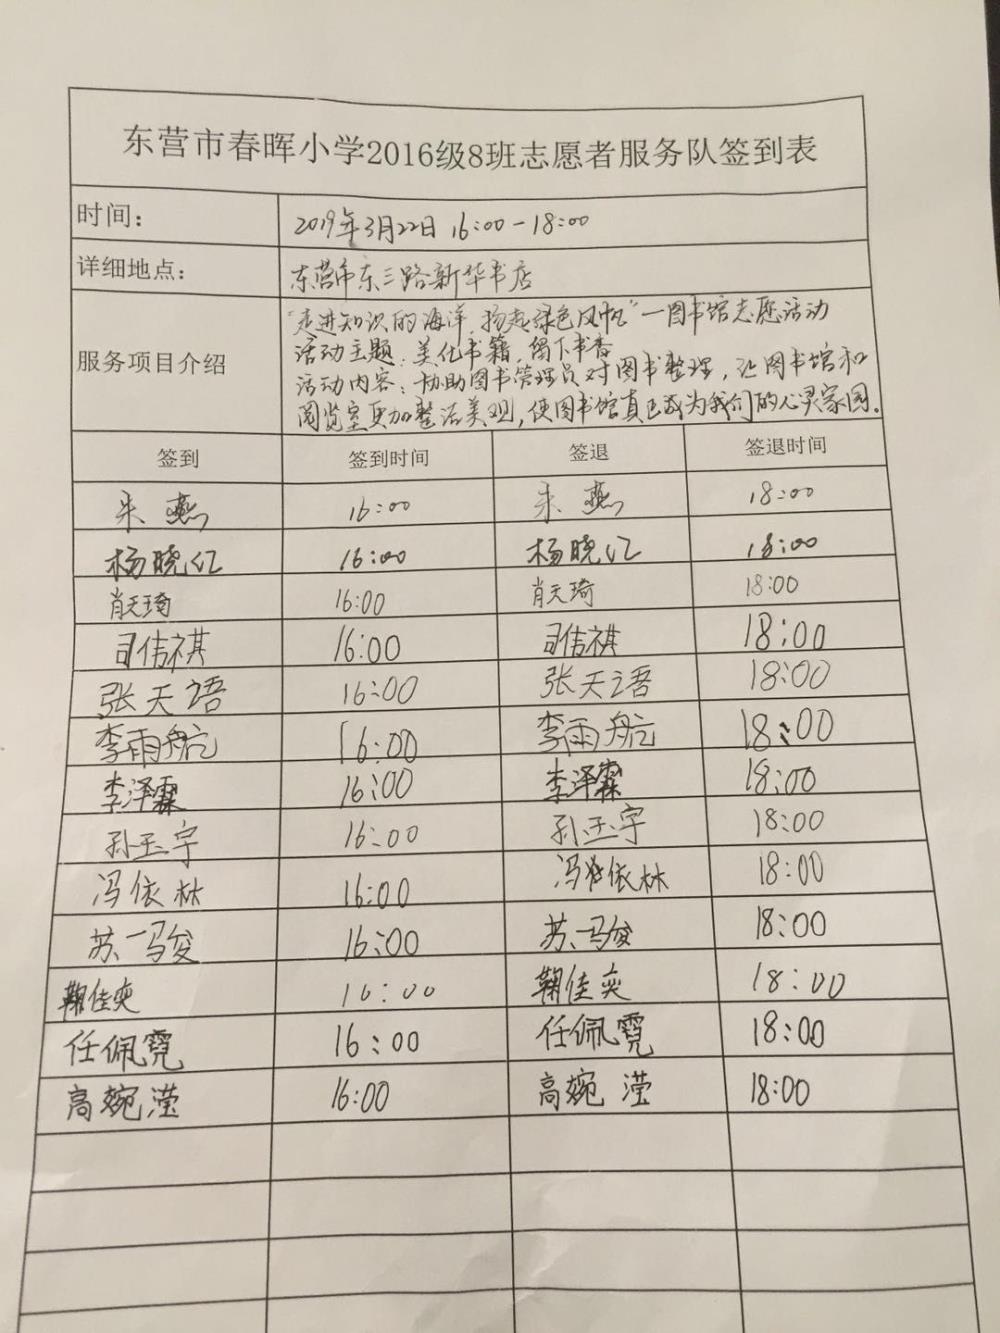 东营市春晖小学2016级8班志愿者服务队签到表
时间： 2019年3月22日 16:00-18:00
详细地点： 东营市东三路新华书店
服务项目介绍
"走进知识的海洋，扬起绿色风帆"一图书馆志愿活动
活动主题：美化书籍，留下书香
活动内容：协助图书管理员对图书整理，让图书馆和
阅览室更加整洁美观，使图书馆真正成为我们的心灵家园。
签到 签到时间 签退 签退时间
朱燕 16:00 朱燕 18:00
杨晓红 16:00 杨晓红 18:00
肖天琦 16:00 肖天琦 18:00
司佶祺 16:00 司佶祺 18:00
张天语 16:00 张天语 18:00
李雨航 16:00 李雨航 18:00
李泽霖 16:00 李泽霖 18:00
孙玉宇 16:00 孙玉宇 18:00
冯依林 16:00 冯依林 18:00
苏一骏 16:00 苏一骏 18:00
鞠佳奕 16:00 鞠佳奕 18:00
任佩霓 16:00 任佩霓 18:00
高婉滢 16:00 高婉滢 18:00